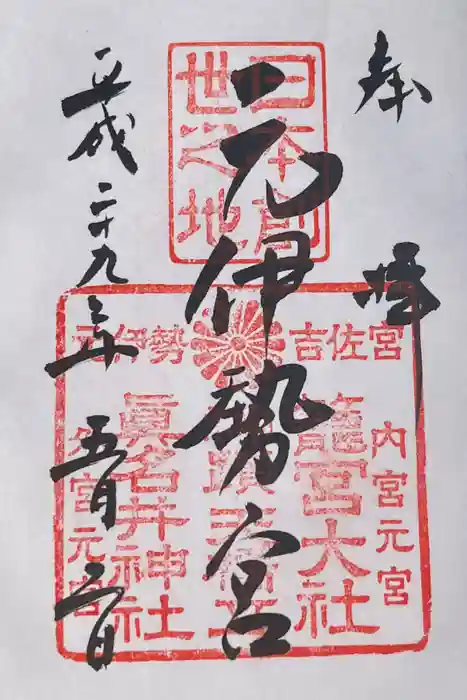 奉拝
日本前
世之地
元伊勢宮
元伊勢 吉佐宮
内宮元宮
籠宮大社
眞名井神社
外宮元宮
平成二十九年五月二日